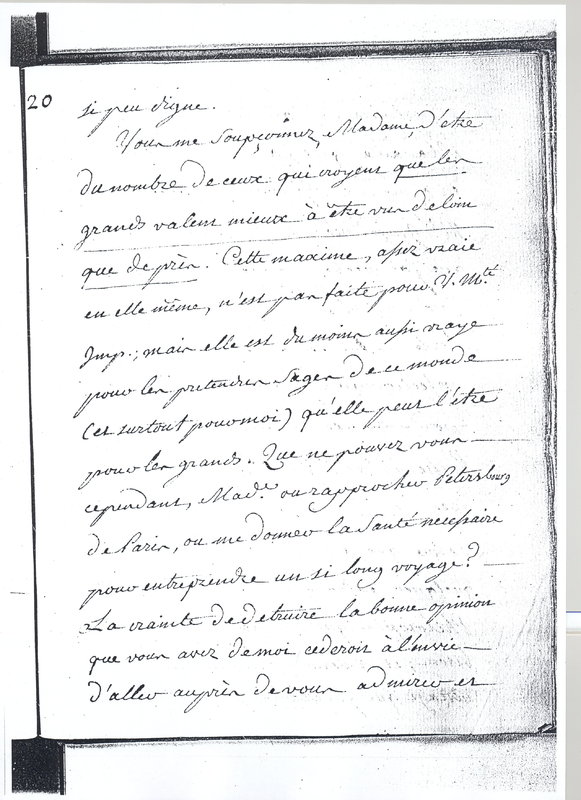 20
si peu digne.
Vous me soupçonnez, Madame, d'etre
du nombre de ceux qui croyent que les
grands valent mieux à être vus de loin
que de près. Cette maxime, assez vraie
en elle même, n'est pas faite pour V. Mté
Imp.; mais elle est du moins aussi vraye
pour les pretendus Sages de ce monde
(et surtout pour moi) qu'elle peut l'être
pour les grands. Que ne pouvez vous
cependant, Made. ou rapprocher Petersbourg
de Paris, ou me donner la Santé necessaire
pour entreprendre un si long voyage?
La crainte de detruire la bonne opinion
que vous avez de moi cederoit à l'envie
d'aller auprès de vous admirer et